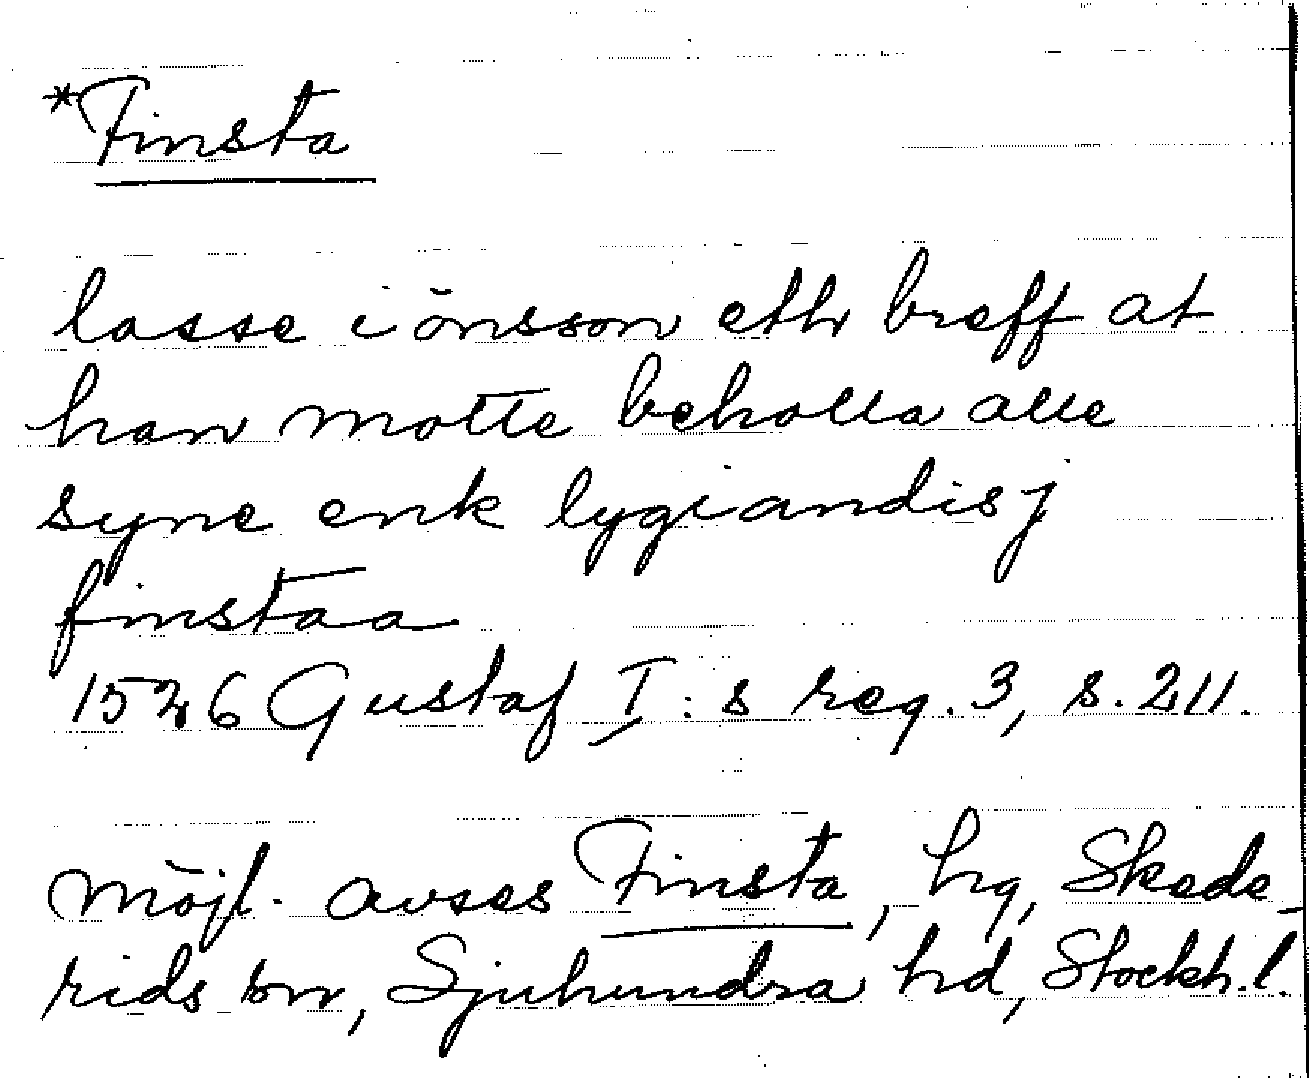 *Finsta
lasse iönsson eth breff at
han motte beholla alle
syne enk lygiandis j
finstaa
1526 Gustaf I:s reg. 3, s. 211.
Möjl. avses Finsta, hg, Skede-
rids sn, Sjuhundra hd, Stockh.l.